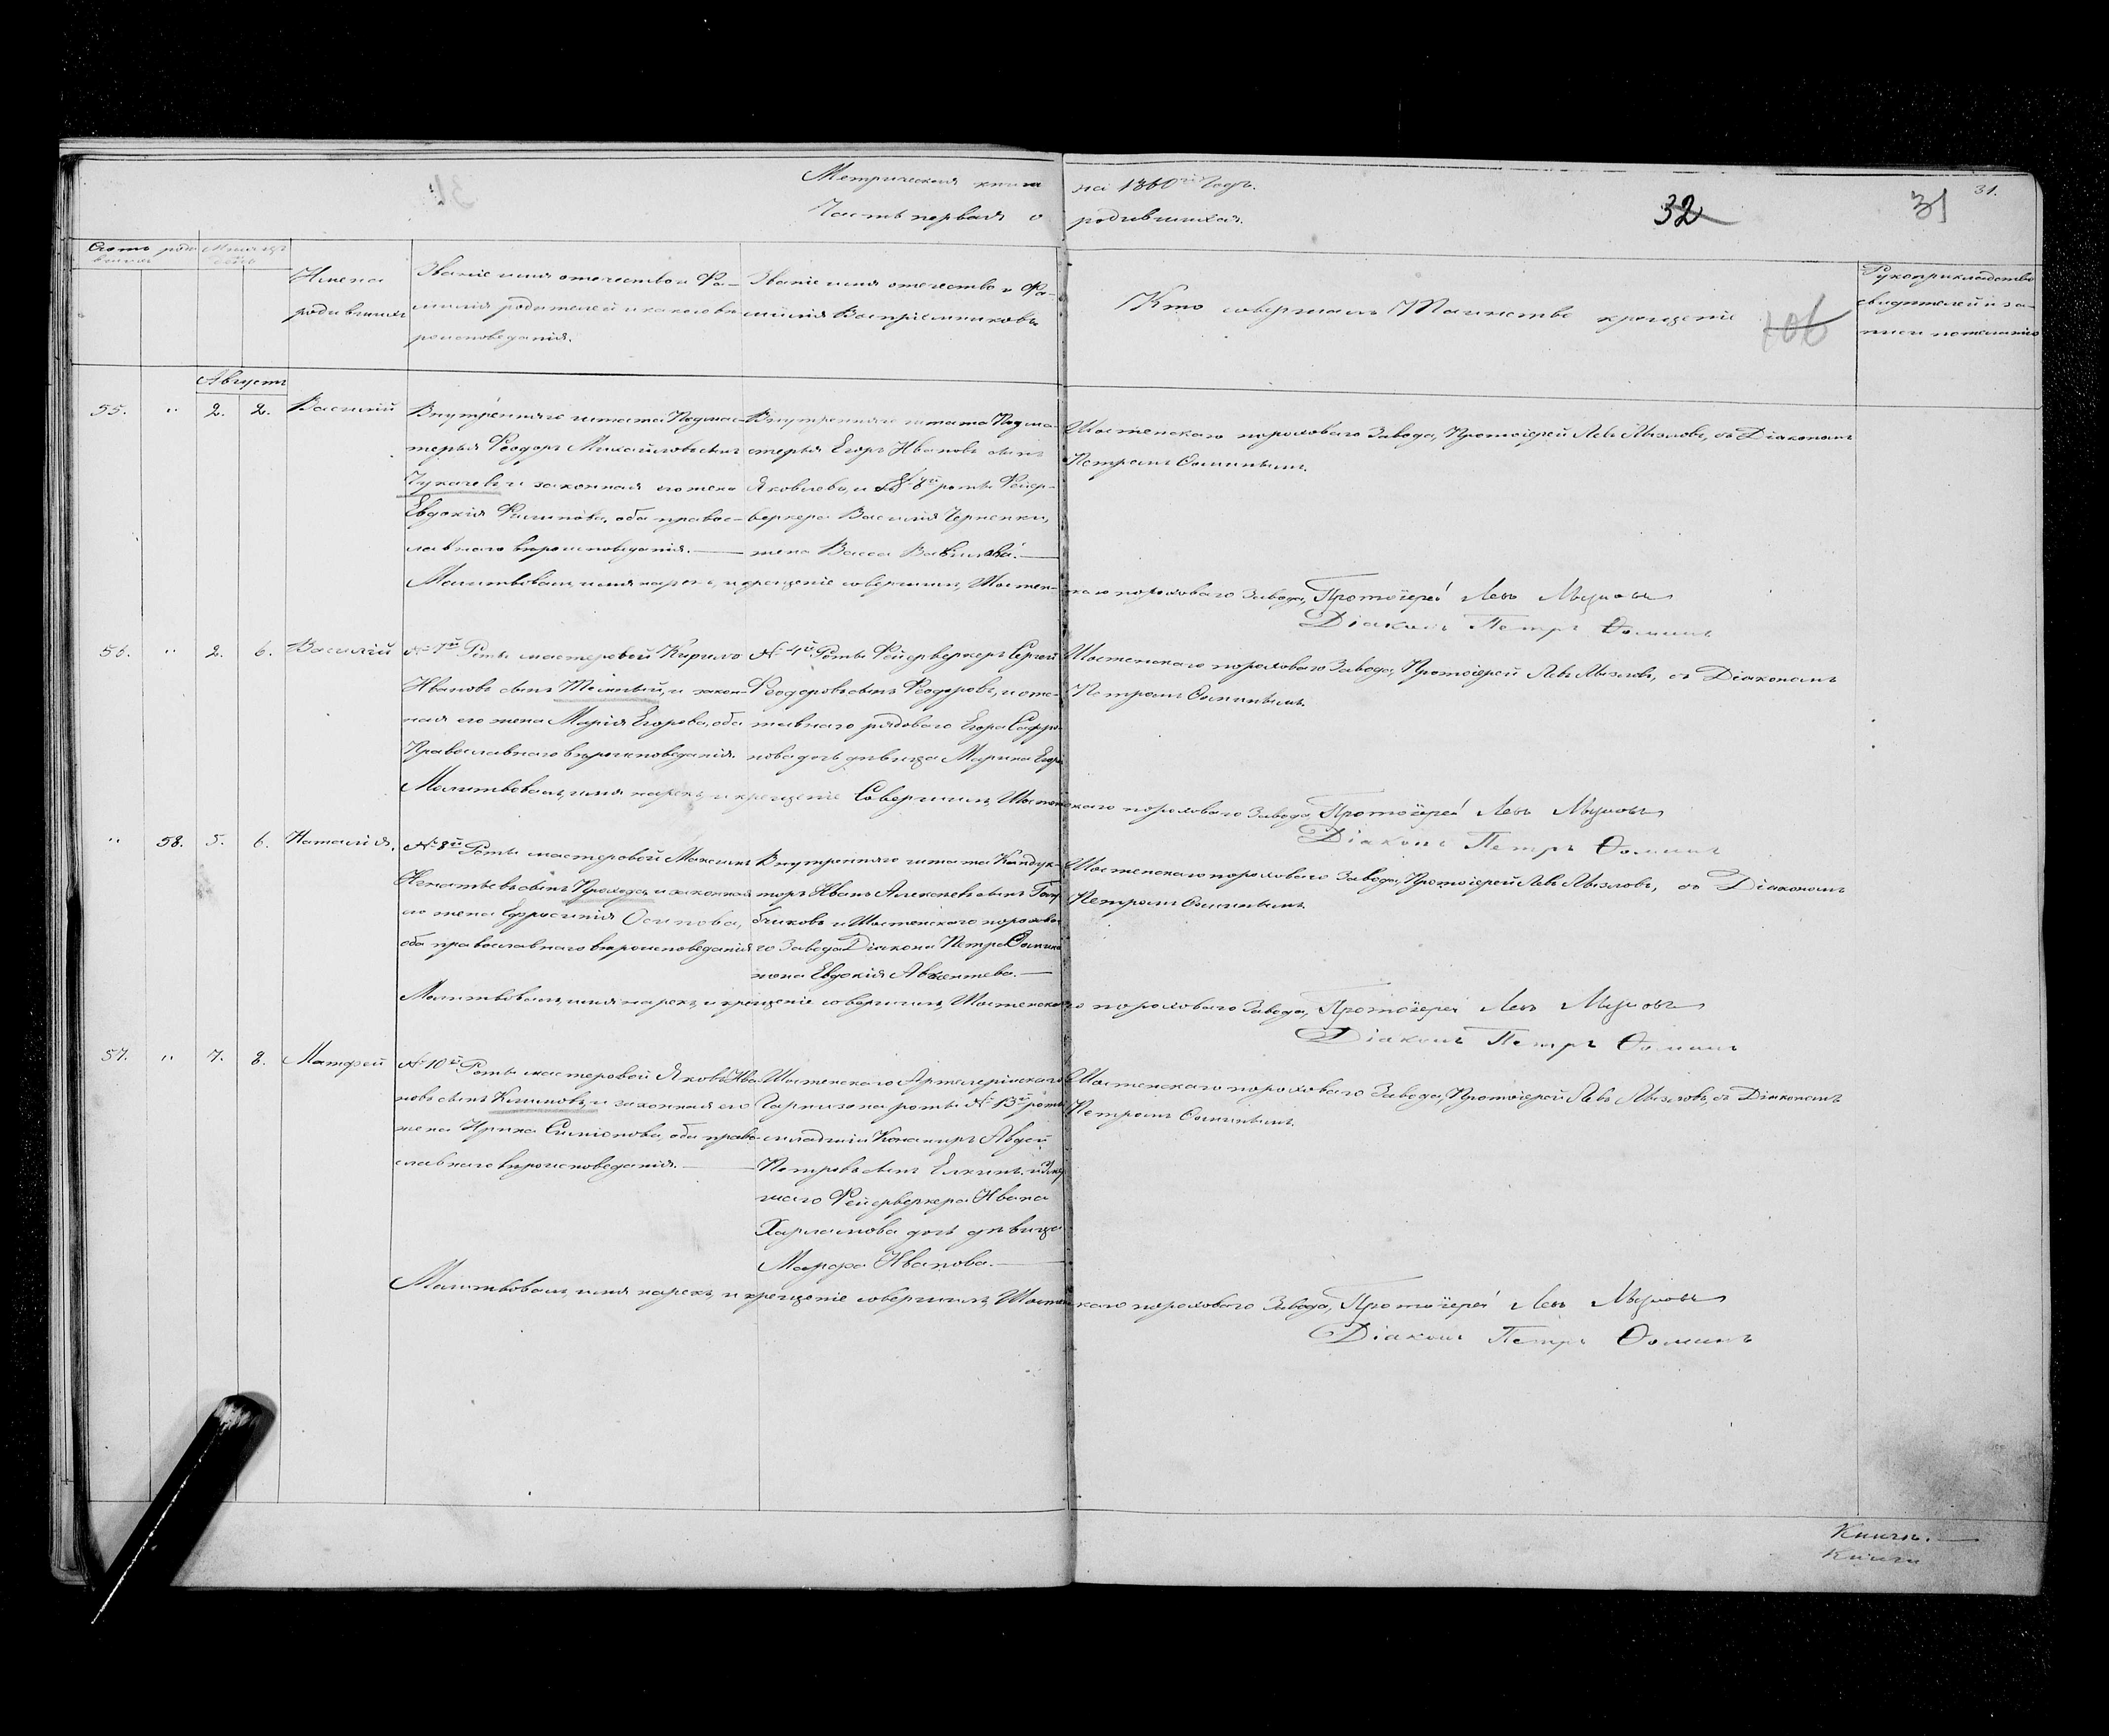 Метрическая книга на 1860й Годъ.
Часть первая о родившихся.
32
31
31.
Счетъ родившихся
Мѣсяцъ
Имена родившихся
Званіе имя отчество и Фамилія родителей и какого вѣроисповеданія.
Званіе имя отечество и Фамилія Воспріемниковъ
Кто совершалъ Таинство крещенія
106
Рукоприкладство свидѣтелей и записи по желанію
Августъ
55. " 2. 2. Василій
Внутренняго штата Подмас-
терья Феодоръ Михайловъ сынъ
Пукачевъ и законная его жена
Евдокія Филипова, оба правос-
лавнаго вѣроисповеданія.
Внутренняго штата Подма-
стерья Егоръ Ивановъ сынъ
Яковлевъ, и № 8й роты Фейер-
веркера Василія Черненки,
жена Васса Вавилова.
Шостенскаго пороховаго Завода, Протоіерей Левъ Мызловъ, съ Діакономъ
Петромъ Ѳоминымъ.
Молитвовалъ, имя нарекъ, и крещеніе совершилъ, Шостенскаго пороховаго Завода, Протоіерей Левъ Мызловъ
Діаконъ Петръ Ѳоминъ
56. " 2. 6. Василій
№ 7й Роты мастеровой Кирило
Ивановъ сынъ Тёмный, и закон-
ная его жена Марія Егорова, оба
Православнаго вѣроисповеданія.
№ 4й Роты Фейерверкеръ Сергей
Феодоровъ сынъ Феодоровъ, и отс-
тавнаго рядоваго Егора Сафро-
нова дочь дѣвица Марина Егор
Шостенскаго пороховаго Завода, Протоіерей Левъ Мызловъ, съ Діакономъ
Петромъ Ѳоминымъ.
Молитвовалъ, имя нарекъ, и крещеніе Совершилъ, Шостенскаго пороховаго Завода, Протоіерей Левъ Мызловъ
Діаконъ Петръ Ѳоминъ
" 58. 5. 6. Наталія.
№ 8й Роты мастеровой Максимъ
Игнатьевъ сынъ Преходъ, и законная
его жена Ефросинія Осипова,
оба православнаго вѣроисповеданія
Внутренняго штата Кондук-
торъ Иванъ Алексеевъ сынъ Голу-
бчиковъ и Шостенскаго порохова-
го Завода Діакона Петра Ѳомина
жена Евдокія Авксентева.
Шостенскаго пороховаго Завода, Протоіерей Левъ Мызловъ, съ Діакономъ
Петромъ Ѳоминымъ
Молитвовалъ, имя нарекъ, и крещеніе совершилъ, Шостенскаго пороховаго Завода, Протоіерей Левъ Мызловъ
Діаконъ Петръ Ѳоминъ
57. " 7. 8. Матфей
№ 10й Роты мастеровой Яковъ Ива-
новъ сынъ Климовъ, и законная его
жена Ирина Симіонова, оба право-
славнаго вѣроисповеданія.
Шостенскаго Артилерійскаго
Гарнизона роты № 13й роты
младшій Канониръ Авдей
Петровъ сынъ Елкинъ, и
Фейерверкера Ивана
Харламова дочь дѣвица
Марфа Иванова.
Шостенскаго пороховаго Завода, Протоіерей Левъ Мызловъ, съ Діакономъ
Петромъ Ѳоминымъ
Молитвовалъ, имя нарекъ, и крещеніе совершилъ, Шостенскаго пороховаго Завода, Протоіерей Левъ Мызловъ
Діаконъ Петръ Ѳоминъ
Книги.
Книги